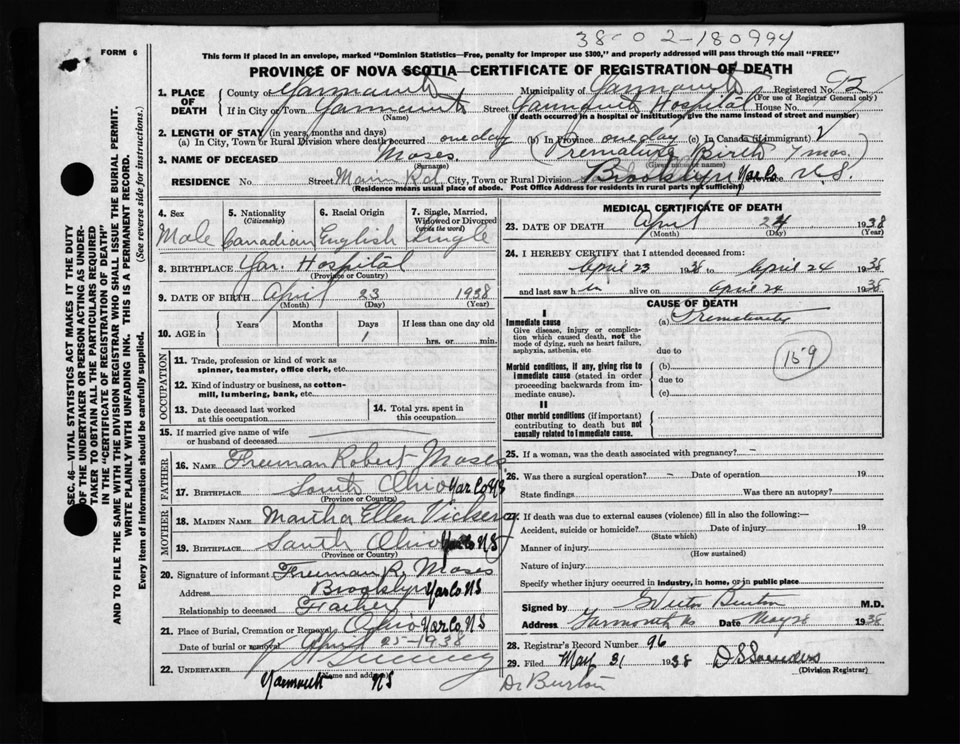 38-02-180994
FORM 6
This form if placed in an envelope, marked "Dominion Statistics—Free, penalty for improper use $300," and properly addressed will pass through the mail "FREE"
PROVINCE OF NOVA SCOTIA—CERTIFICATE OF REGISTRATION OF DEATH
SEC. 46—VITAL STATISTICS ACT MAKES IT THE DUTY
OF THE UNDERTAKER OR PERSON ACTING AS UNDER-
TAKER TO OBTAIN ALL THE PARTICULARS REQUIRED
IN THE "CERTIFICATE OF REGISTRATION OF DEATH"
AND TO FILE THE SAME WITH THE DIVISION REGISTRAR WHO SHALL ISSUE THE BURIAL PERMIT.
WRITE PLAINLY WITH UNFADING INK. THIS IS A PERMANENT RECORD.
Every item of information should be carefully supplied. (See reverse side for instructions.)
1. PLACE OF DEATH County of Yarmouth Municipality of Yarmouth Registered No. 92
(For use of Registrar General only)
If in City or Town Yarmouth Street Yarmouth Hospital House No.
(Name) (If death occurred in a hospital or institution, give the name instead of street and number)
2. LENGTH OF STAY (in years, months and days)
(a) In City, Town or Rural Division where death occurred one day (b) In Province one day (c) In Canada (if immigrant)
3. NAME OF DECEASED Moses (Premature Birth 7 mos.)
(Surname) (Given name or names)
RESIDENCE No. Street Main Rd. City, Town or Rural Division Brooklyn Yar Co Province N.S.
(Residence means usual place of abode. Post Office Address for residents in rural parts not sufficient)
4. Sex Male
5. Nationality (Citizenship) Canadian
6. Racial Origin English
7. Single, Married, Widowed or Divorced (write the word) Single
8. BIRTHPLACE Yar. Hospital
(Province or Country)
9. DATE OF BIRTH April 23 1938
(Month) (Day) (Year)
10. AGE in Years Months Days If less than one day old
1 hrs. or min.
OCCUPATION
11. Trade, profession or kind of work as
spinner, teamster, office clerk, etc.
12. Kind of industry or business, as cotton-
mill, lumbering, bank, etc.
13. Date deceased last worked
at this occupation
14. Total yrs. spent in
this occupation
15. If married give name of wife
or husband of deceased
FATHER
16. NAME Freeman Robert Moses
17. BIRTHPLACE South Ohio Yar Co NS
(Province or Country)
MOTHER
18. MAIDEN NAME Martha Ellen Vickery
19. BIRTHPLACE South Ohio Yar Co NS
(Province or Country)
20. Signature of informant Freeman R. Moses
Address Brooklyn Yar Co NS
Relationship to deceased Father
21. Place of Burial, Cremation or Removal Ohio Yar Co NS
Date of burial or removal April 25-1938
22. UNDERTAKER
(Name and address)
Yarmouth NS
MEDICAL CERTIFICATE OF DEATH
23. DATE OF DEATH April 24 1938
(Month) (Day) (Year)
24. I HEREBY CERTIFY that I attended deceased from:
April 23 1938 to April 24 1938
and last saw him alive on April 24 1938
CAUSE OF DEATH
I
Immediate cause (a) Prematurity
Give disease, injury or complica-
tion which caused death, not the
mode of dying, such as heart failure,
asphyxia, asthenia, etc
due to
159
Morbid conditions, if any, giving rise to
immediate cause (stated in order
proceeding backwards from im-
mediate cause).
(b)
due to
(c)
II
Other morbid conditions (if important)
contributing to death but not
causally related to immediate cause.
25. If a woman, was the death associated with pregnancy? -
26. Was there a surgical operation? - Date of operation 19
State findings Was there an autopsy?
27. If death was due to external causes (violence) fill in also the following:—
Accident, suicide or homicide? Date of injury 19
(State which)
Manner of injury
(How sustained)
Nature of injury
Specify whether injury occurred in industry, in home, or in public place
Signed by Burton M.D.
Address Yarmouth NS Date May 28 1938
28. Registrar's Record Number 96
29. Filed May 31 1938 D S Saunders
(Division Registrar)
Dr Burton